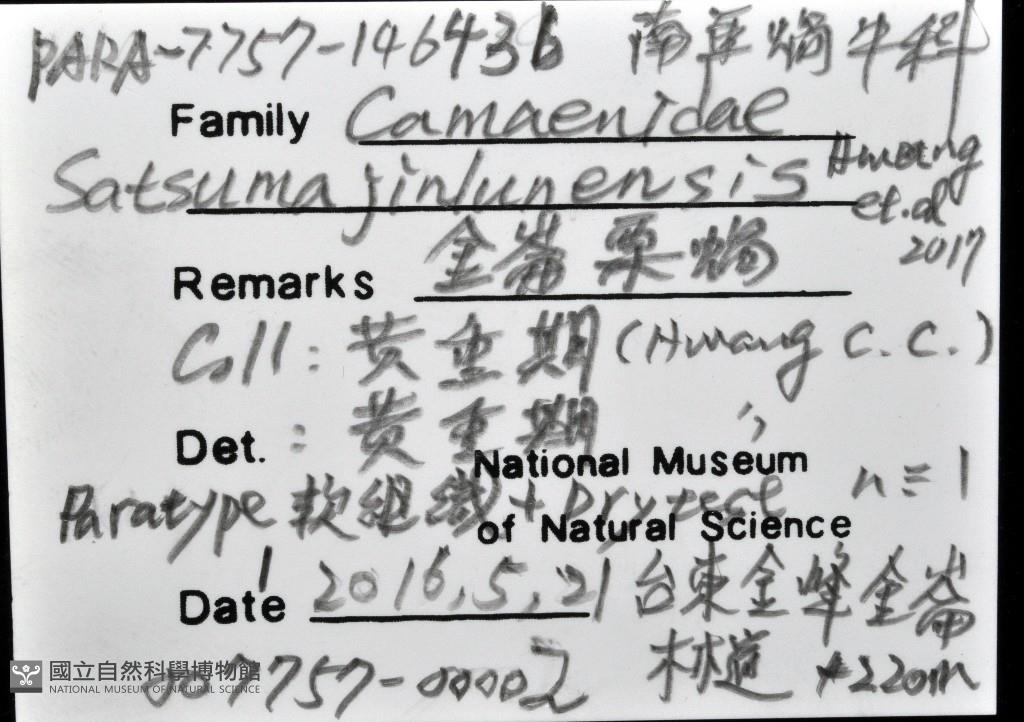 PARA-7757-146436 南亞蝸牛科
Family Camaenidae
Satsuma jinlunensis Hwang et.al 2017
Remarks 金崙栗蝸
Coll: 黃重期 (Hwang C. C.)
Det.: 黃重期 〃
National Museum
Paratype 軟組織 + Dry test n=1
of Natural Science
1
Date 2016,5,21 台東金峰金崙
林道 220m
7757-00002
國立自然科學博物館
NATIONAL MUSEUM OF NATURAL SCIENCE